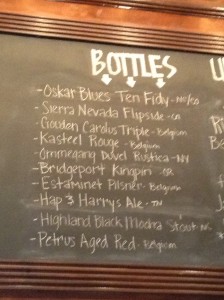 BOTTLES
- Oskar Blues Ten Fidy - NC/CO
- Sierra Nevada Flipside - CA
- Gouden Carolus Triple - Belgium
- Kasteel Rouge - Belgium
- Ommegang Duvel Rustica - NY
- Bridgeport Kingpin - OR
- Estaminet Pilsner - Belgium
- Hap & Harrys Ale - TN
- Highland Black Mocha Stout NC
- Petrus Aged Red - Belgium